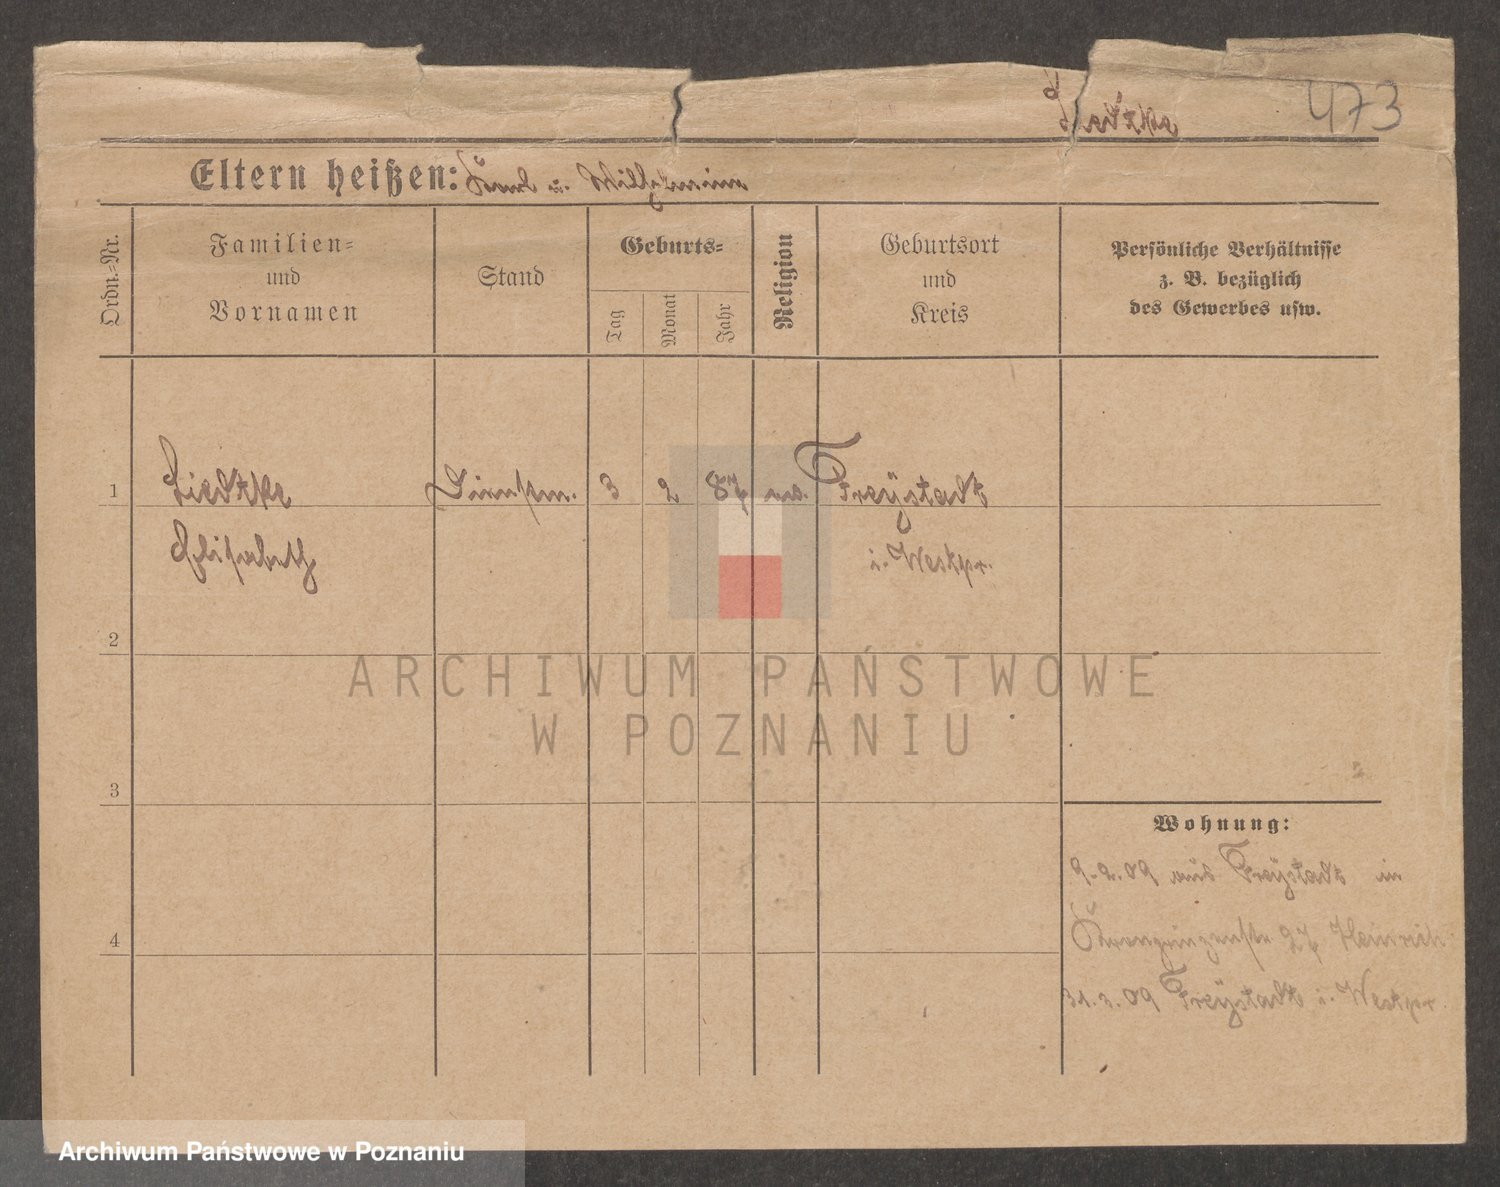 473
Liedtke
Eltern heißen: Karl u. Wilhelmine
Ordn.-Nr.
Familien-
und
Vornamen
Stand
Geburts-
Tag
Monat
Jahr
Religion
Geburtsort
und
Kreis
Persönliche Verhältnisse
z. B. bezüglich
des Gewerbes usw.
1
Liedtke
Elisabeth
3 2 87 Freystadt
i. Westpr.
2
3
4
Wohnung:
9.2.09 aus Freystadt in
Kronprinzenstr 27 Heinrich
31.3.09 Freystadt i. Westpr.
ARCHIWUM PAŃSTWOWE
W POZNANIU
Archiwum Państwowe w Poznaniu